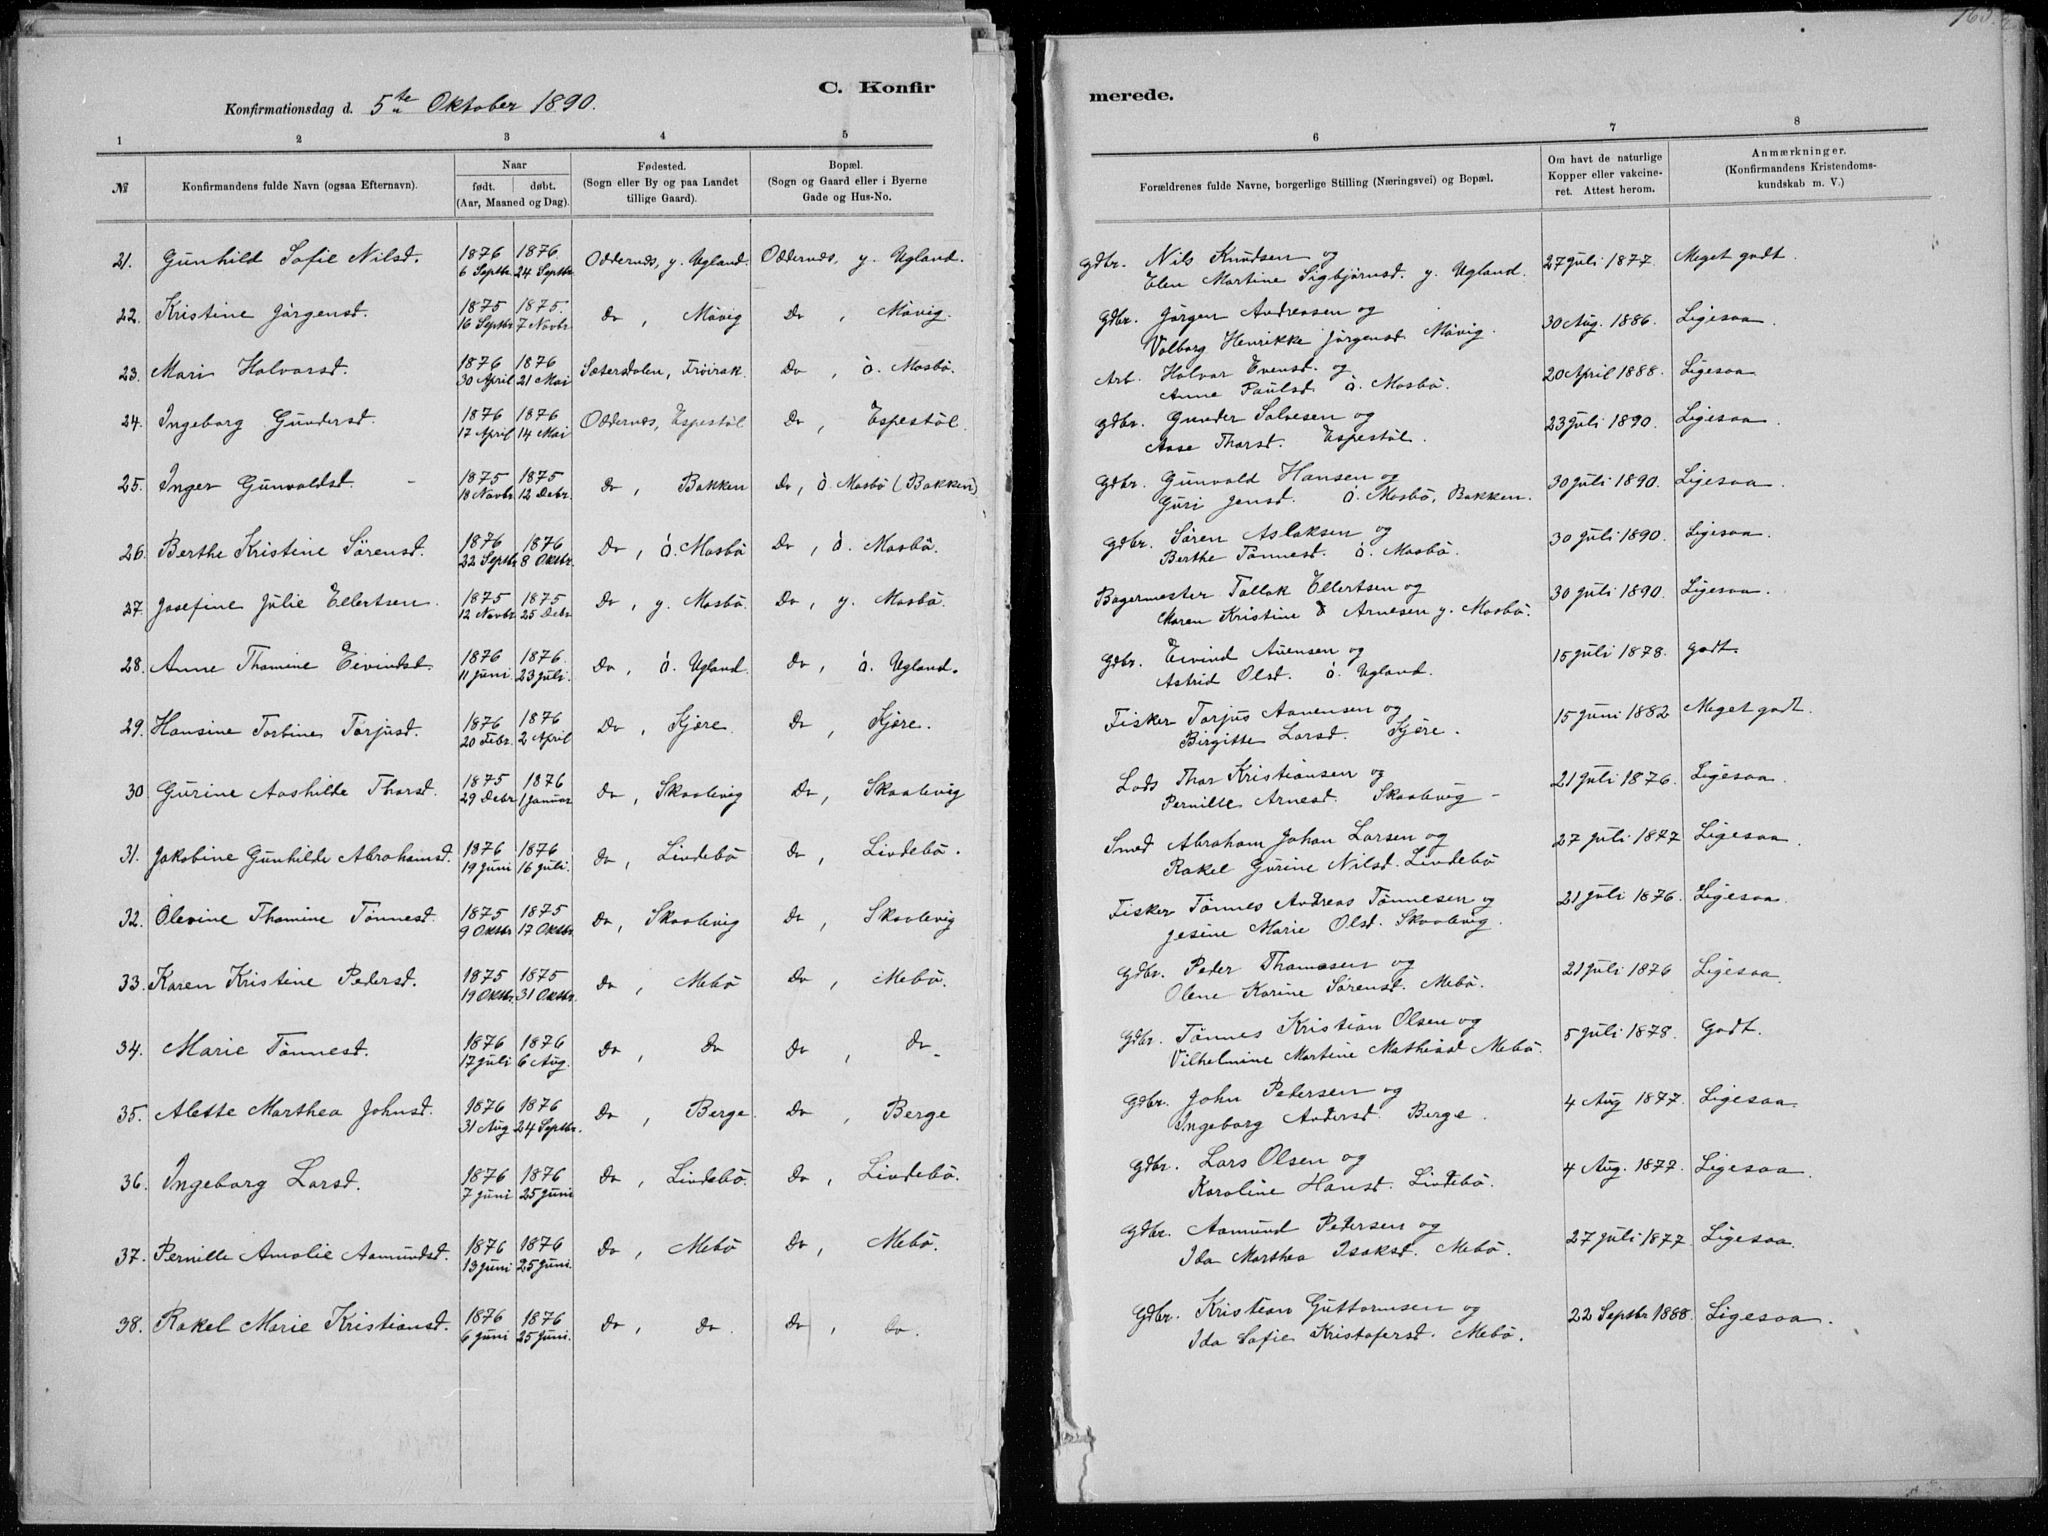 163.
C. Konfir
merede.
Konfirmationsdag d. 5te Oktober 1890.
1 2 3 4 5 6 7 8
№ Konfirmandens fulde Navn (ogsaa Efternavn). Naar født. døbt. (Aar, Maaned og Dag). Fødested. (Sogn eller By og paa Landet tillige Gaard). Bopæl. (Sogn og Gaard eller i Byerne Gade og Hus-No. Forældrenes fulde Navne, borgerlige Stilling (Næringsvei) og Bopæl. Om havt de naturlige Kopper eller vakcineret. Attest herom. Anmærkninger. (Konfirmandens Kristendomskundskab m. V.)
21. Gunhild Sofie Nilsd. 1876 6 Septbr. 1876 24 Septbr. Oddernæs, y. Ugland. Oddernæs, y. Ugland. Gdbr. Nils Knudsen og 27 juli 1877. Meget godt.
Elen Martine Sigbjørnsd. y. Ugland.
22. Kristine Jörgensd. 1875 16 Septbr. 1875. 7 Novbr. Do , Måvig Do , Måvig. Gdbr. Jörgen Andreasen og 30 Aug. 1886. Ligesaa.
Valborg Henrikke Jörgensd. Måvig.
23. Mari Halvorsd. 1876 30 April 1876 21 Mai Sætersdalen, Fröirak. Do , ö. Mosbö. Arb. Halvor Evensd. og 20 April 1888. Ligesaa
Anne Paulsd. ö. Mosbö.
24. Ingeborg Gundersd. 1876 17 April 1876 14 Mai Oddernæs, Espestöl Do , Espestöl. Gdbr. Gunder Salvesen og 23 juli 1890. Ligesaa.
Aase Thorsd. Espestöl.
25. Inger Gunvaldsd. 1875 18 Novbr. 1875 12 Debr. Do , Bakken Do, ö. Mosbö (Bakken) Gdbr. Gunvald Hansen og 30 juli 1890. Ligesaa.
Guri Jensd. ö. Mosbö, Bakken.
26. Berthe Kristine Sörensd. 1876 22 Septbr. 1876 8 Oktbr. Do , ö. Mosbö Do , ö. Mosbö. Gdbr. Sören Aslaksen og 30 juli 1890. Ligesaa.
Berthe Tönnesd. ö. Mosbö.
27. Josefine Julie Ellertsen. 1875 12 Novbr. 1875 25 Debr. Do , y. Mosbö. Do , y. Mosbö. Bagermester Tallak Ellertsen og 30 juli 1890. Ligesaa.
Maren Kristine Arnesen y. Mosbö.
28. Anne Thomine Eivindsd. 1876 11 juni 1876. 23 juli. Do , ö. Ugland. Do , ö. Ugland. Gdbr. Eivind Auensen og 15 juli 1878. godt.
Astrid Olsd. ö. Ugland.
29. Hansine Torbine Torjusd. 1876 20 Febr. 1876 2 April Do , Kjöre. Do , Kjöre. Fisker Torjus Aanensen og 15 juni 1882 Meget godt.
Birgitte Larsd. Kjöre.
30. Gurine Aashilde Thorsd. 1875 29 Debr 1876 1 Januar Do , Skaalevig Do , Skaalevig Lods Thor Kristiansen og 21 juli 1876. Ligesaa.
Pernille Arnesd. Skaalevig
31. Jakobine Gunhilde Abrahamsd. 1876 19 juni 1876 16 juli. Do , Lindebö Do , Lindebö. Smed Abraham Johan Larsen og 27 juli 1877 Ligesaa.
Rakel Gurine Nilsd. Lindebö
32. Olevine Thomine Tönnesd. 1875 9 Oktbr. 1875 17 Oktbr. Do , Skaalevig Do , Skaalevig Fisker Tönnes Andreas Tönnesen og 21 juli 1876. Ligesaa.
Jesine Marie Olsd. Skaalevig.
33. Karen Kristine Pedersd. 1875 19 Oktbr. 1875 31 Oktbr. Do , Mebö Do , Mebö. Gdbr. Peder Thomesen og 21 juli 1876 Ligesaa.
Olene Karine Sörensd. Mebö.
34. Marie Tönnesd. 1876 17 juli 1876 6 Aug. Do , Do Do , Do Gdbr. Tönnes Kristian Olsen og 5 juli 1878. Godt.
Vilhelmine Martine Mathiasd Mebö.
35. Alette Marthea Johnsd. 1876 31 Aug 1876 24 Septbr. Do , Berge. Do , Berge Gdbr. John Petersen og 4 Aug 1877. Ligesaa.
Ingeborg Andersd. Berge.
36. Ingeborg Larsd. 1876 7 juni 1876 25 juni Do , Lindebö. Do , Lindebö. Gdbr. Lars Olsen og 4 Aug. 1877. Ligesaa.
Karoline Hansd. Lindebö.
37. Pernille Amalie Aamundsd. 1876 13 juni 1876 25 juni. Do , Mebö Do , Mebö. Gdbr. Aamund Petersen og 27 juli 1877. Ligesaa.
Ida Marthea Isaksd. Mebö.
38. Rakel Marie Kristiansd. 1876 6 juni 1876 25 juni. Do , Do Do , Do. Gdbr. Kristian Guttormsen og 22 Septbr 1888. Ligesaa.
Ida Sofie Kristofersd. Mebö.